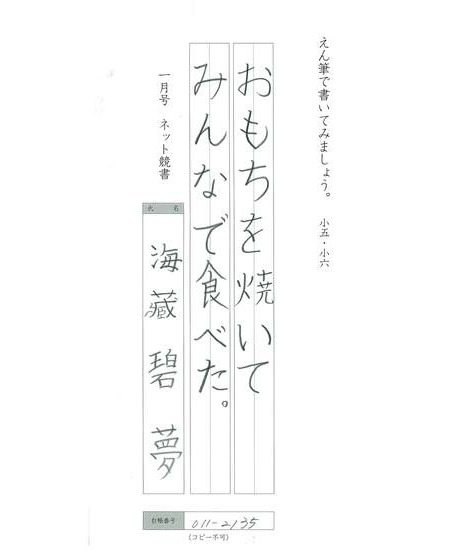 えん筆で書いてみましょう。 小五・小六
おもちを焼いて
みんなで食べた。
一月号 ネット競書
氏名
海藏碧夢
台帳番号 011-2135
(コピー不可)